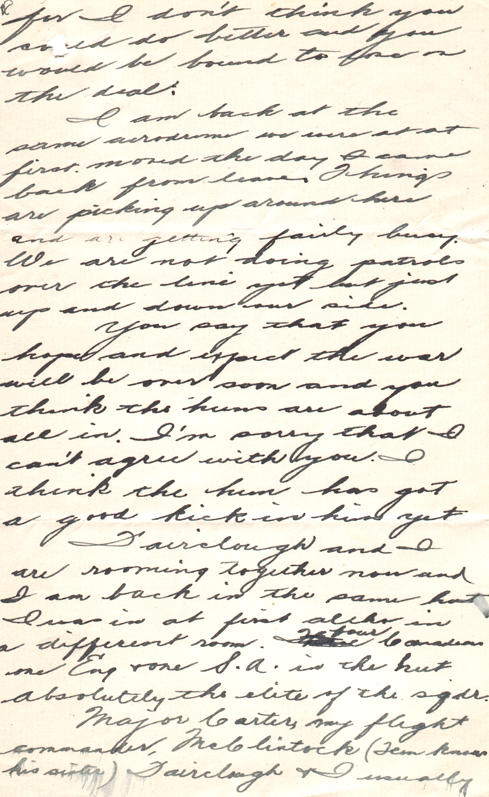 for I don't think you
could do better and you
would be bound to lose on
the deal.
I am back at the
same aerodrome we were at at
first. moved the day I came
back from leave. Things
are picking up around here
and are getting fairly busy.
We are not doing patrols
over the line yet but just
up and down our side.
You say that you
hope and expect the war
will be over soon and you
think the huns are about
all in. I'm sorry that I
can't agree with you. I
think the hun has got
a good kick in him yet
Fairclough and I
are rooming together now and
I am back in the same hut
I was in at first altho in
a different room. four Canadians
one Eng + one S.A. in the hut
absolutely the elite of the sqdr.
Major Carter, my flight
commander, McClintock (Fern knows
his sister) Fairclough & I usually